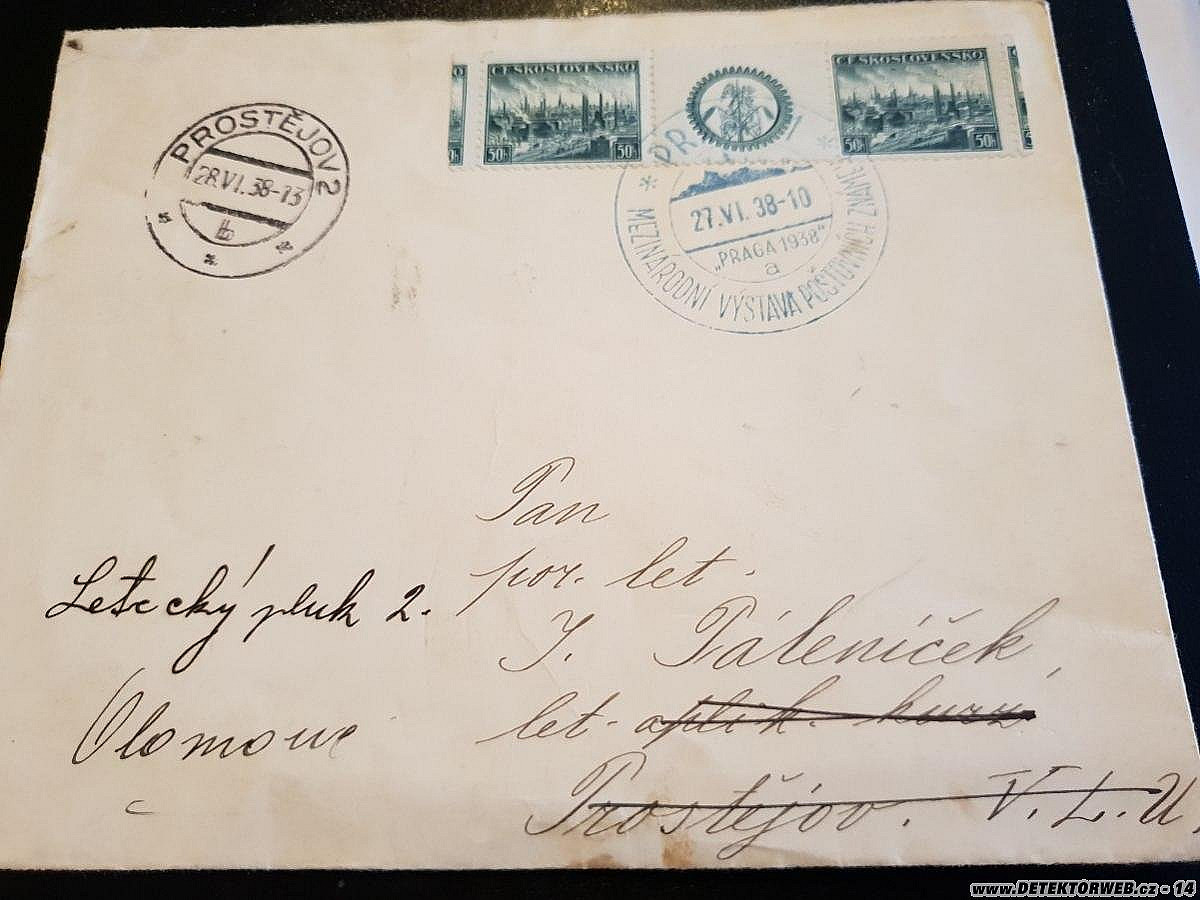 ČESKOSLOVENSKO
50h 50h
ČESKOSLOVENSKO
50h 50h
PROSTĚJOV 2
28.VI.38-13
b
27.VI.38-10
„PRAGA 1938“
a
* MEZINÁRODNÍ VÝSTAVA POŠTOVNÍCH ZNÁMEK *
Pan
por. let.
J. Páleníček
let. aplik. kurz
Prostějov. V.L.U.
Letecký pluk 2.
Olomouc
www.DETEKTORWEB.cz - 14